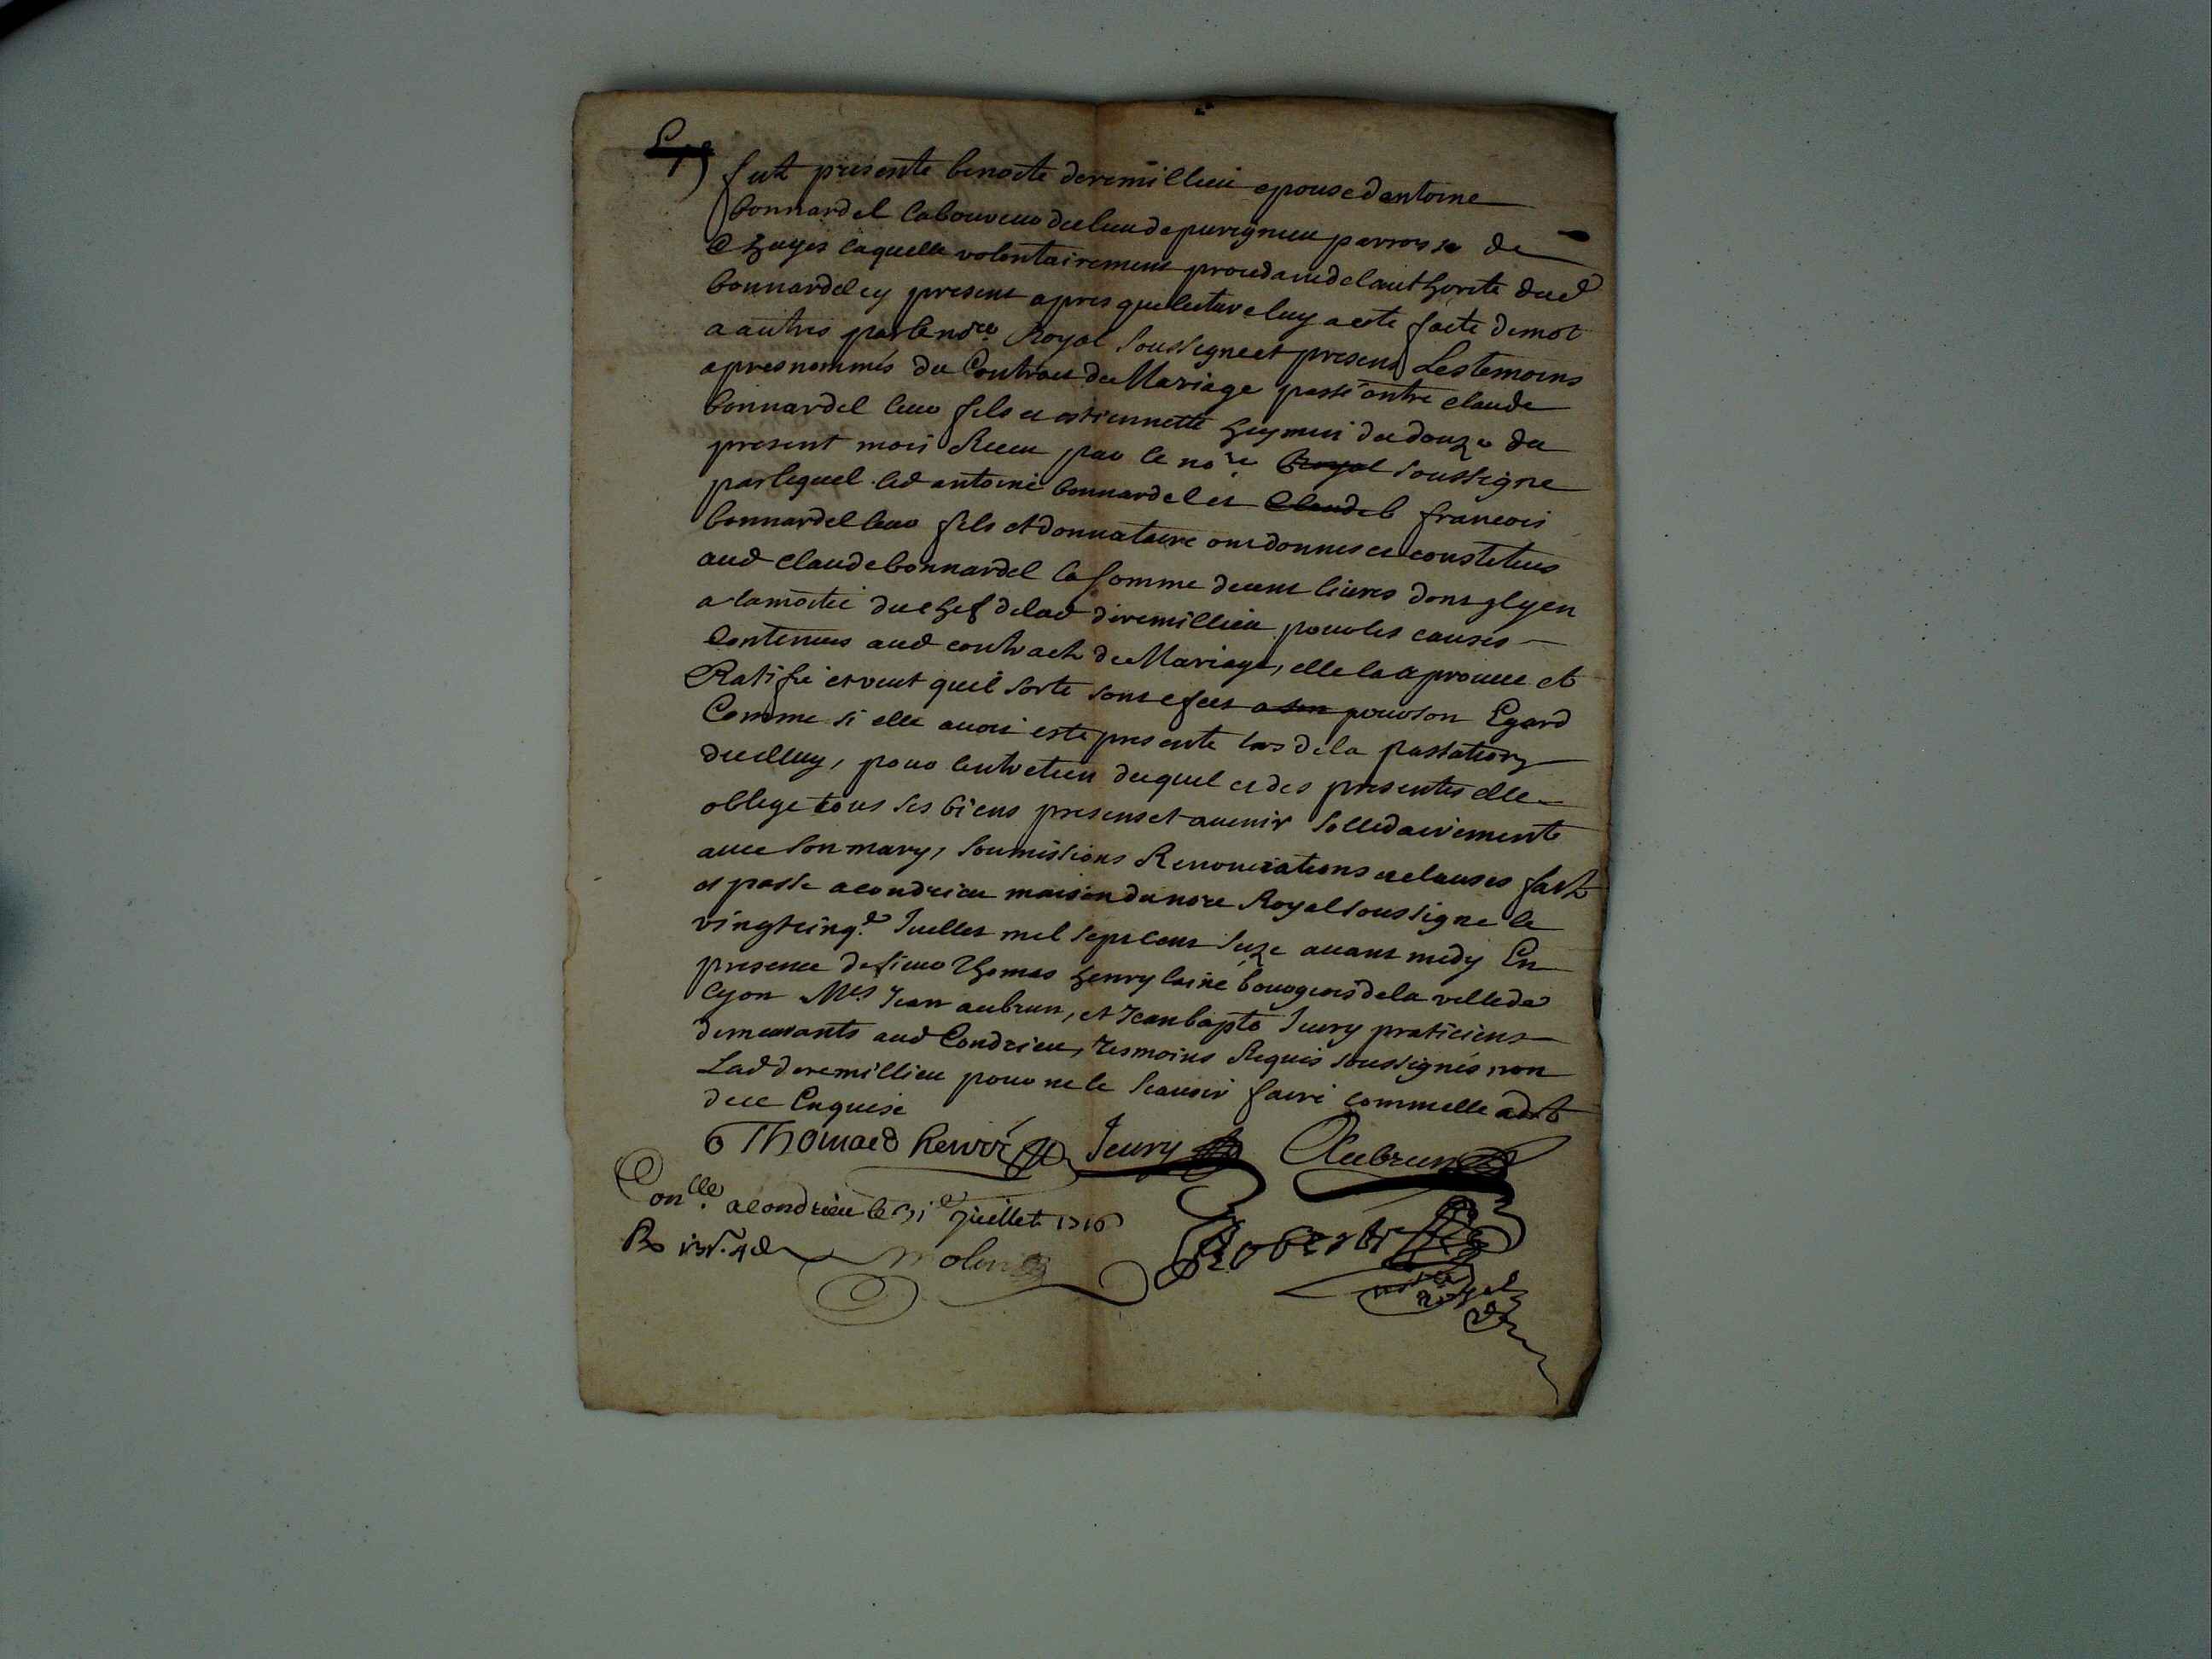 fut presente benoite deremillieu epouse dantoine
bonnardel laboureur du lieu de puvignieu parroisse de
hayes laquelle volontairement proced de lauthorite dud
bonnardel cy present apres que lecture luy a este faite de mot
a autres par le nore Royal soussigne et presens Les temoins
apres nommés du Contrat de Mariage passé entre claude
bonnardel leur fils et estiennette du douze du
present mois Receu par le nore Royal soussigne
par lequel led antoine bonnardel et Claude b francois
bonnardel leur fils et donnataire ont donnes et constitues
aud claude bonnardel la somme de cent livres dont il y en
a la moitié du chef de lad deremillieu pour les causes
Contenues aud contract de Mariage, elle la aprouve et
Ratifie et veut quil sorte sont efect a son pour son Egard
Comme si elle avoit este presente lors de la passation
dicelluy, pour lentretien duquel et des presentes elle
oblige tous ses biens presens et avenir sollidairement
avec son mary, soumissions Renonciations et clauses fait
et passe a condrieu maison du nore Royal soussigne le
vingt cinqe Juillet mil sept cent seize avant midy En
presence de sieur Thomas henry lainé bourgeois de la ville de
lyon Mes Jean aubrun, et Jean bapte Jeury praticiens
demeurants aud Condrieu, tesmoins Requis soussignés non
Lad deremillieu pour ne le scavoir faire comme elle a dit
de ce Enquise
Thomaes henri Jeury Aubrun
Conlle a condrieu le 31e Juillet 1716
R molin Robert
nore
Royal